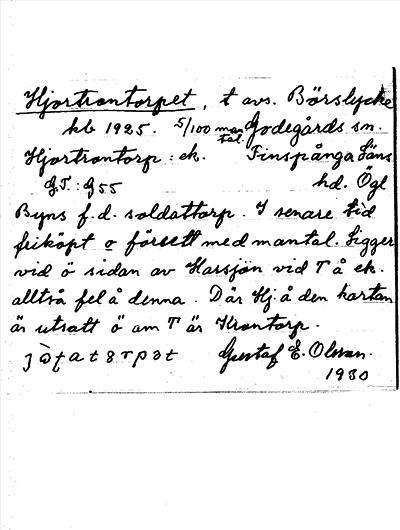 Hjortrontorpet, t avs. Börslycke
kb 1925. 5/100 mantal. Godegårds sn.
Hjortrontorp: ek. Finspånga läns
G.T.: G55 hd. Ögl
Byns f.d. soldattorp. I senare tid
friköpt o försett med mantal. Ligger
vid ö sidan av Harsjön vid T å ek.
alltså fel å denna. Där Hj. å den kartan
är utsatt ö om T är Krontorp.
Gustaf E. Olsson.
1930